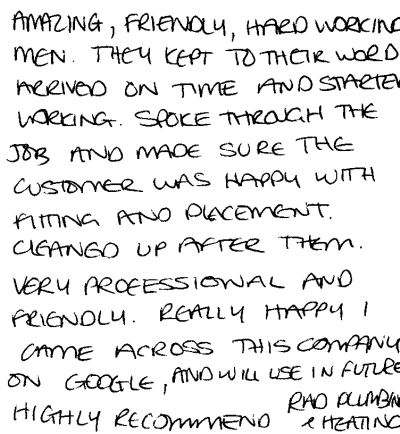 AMAZING, FRIENDLY, HARD WORKING
MEN. THEY KEPT TO THEIR WORD
ARRIVED ON TIME AND STARTED
WORKING. SPOKE THROUGH THE
JOB AND MADE SURE THE
CUSTOMER WAS HAPPY WITH
FITTING AND PLACEMENT.
CLEANED UP AFTER THEM.
VERY PROFESSIONAL AND
FRIENDLY. REALLY HAPPY I
CAME ACROSS THIS COMPANY
ON GOOGLE, AND WILL USE IN FUTURE
HIGHLY RECOMMEND RAD PLUMBING
& HEATING